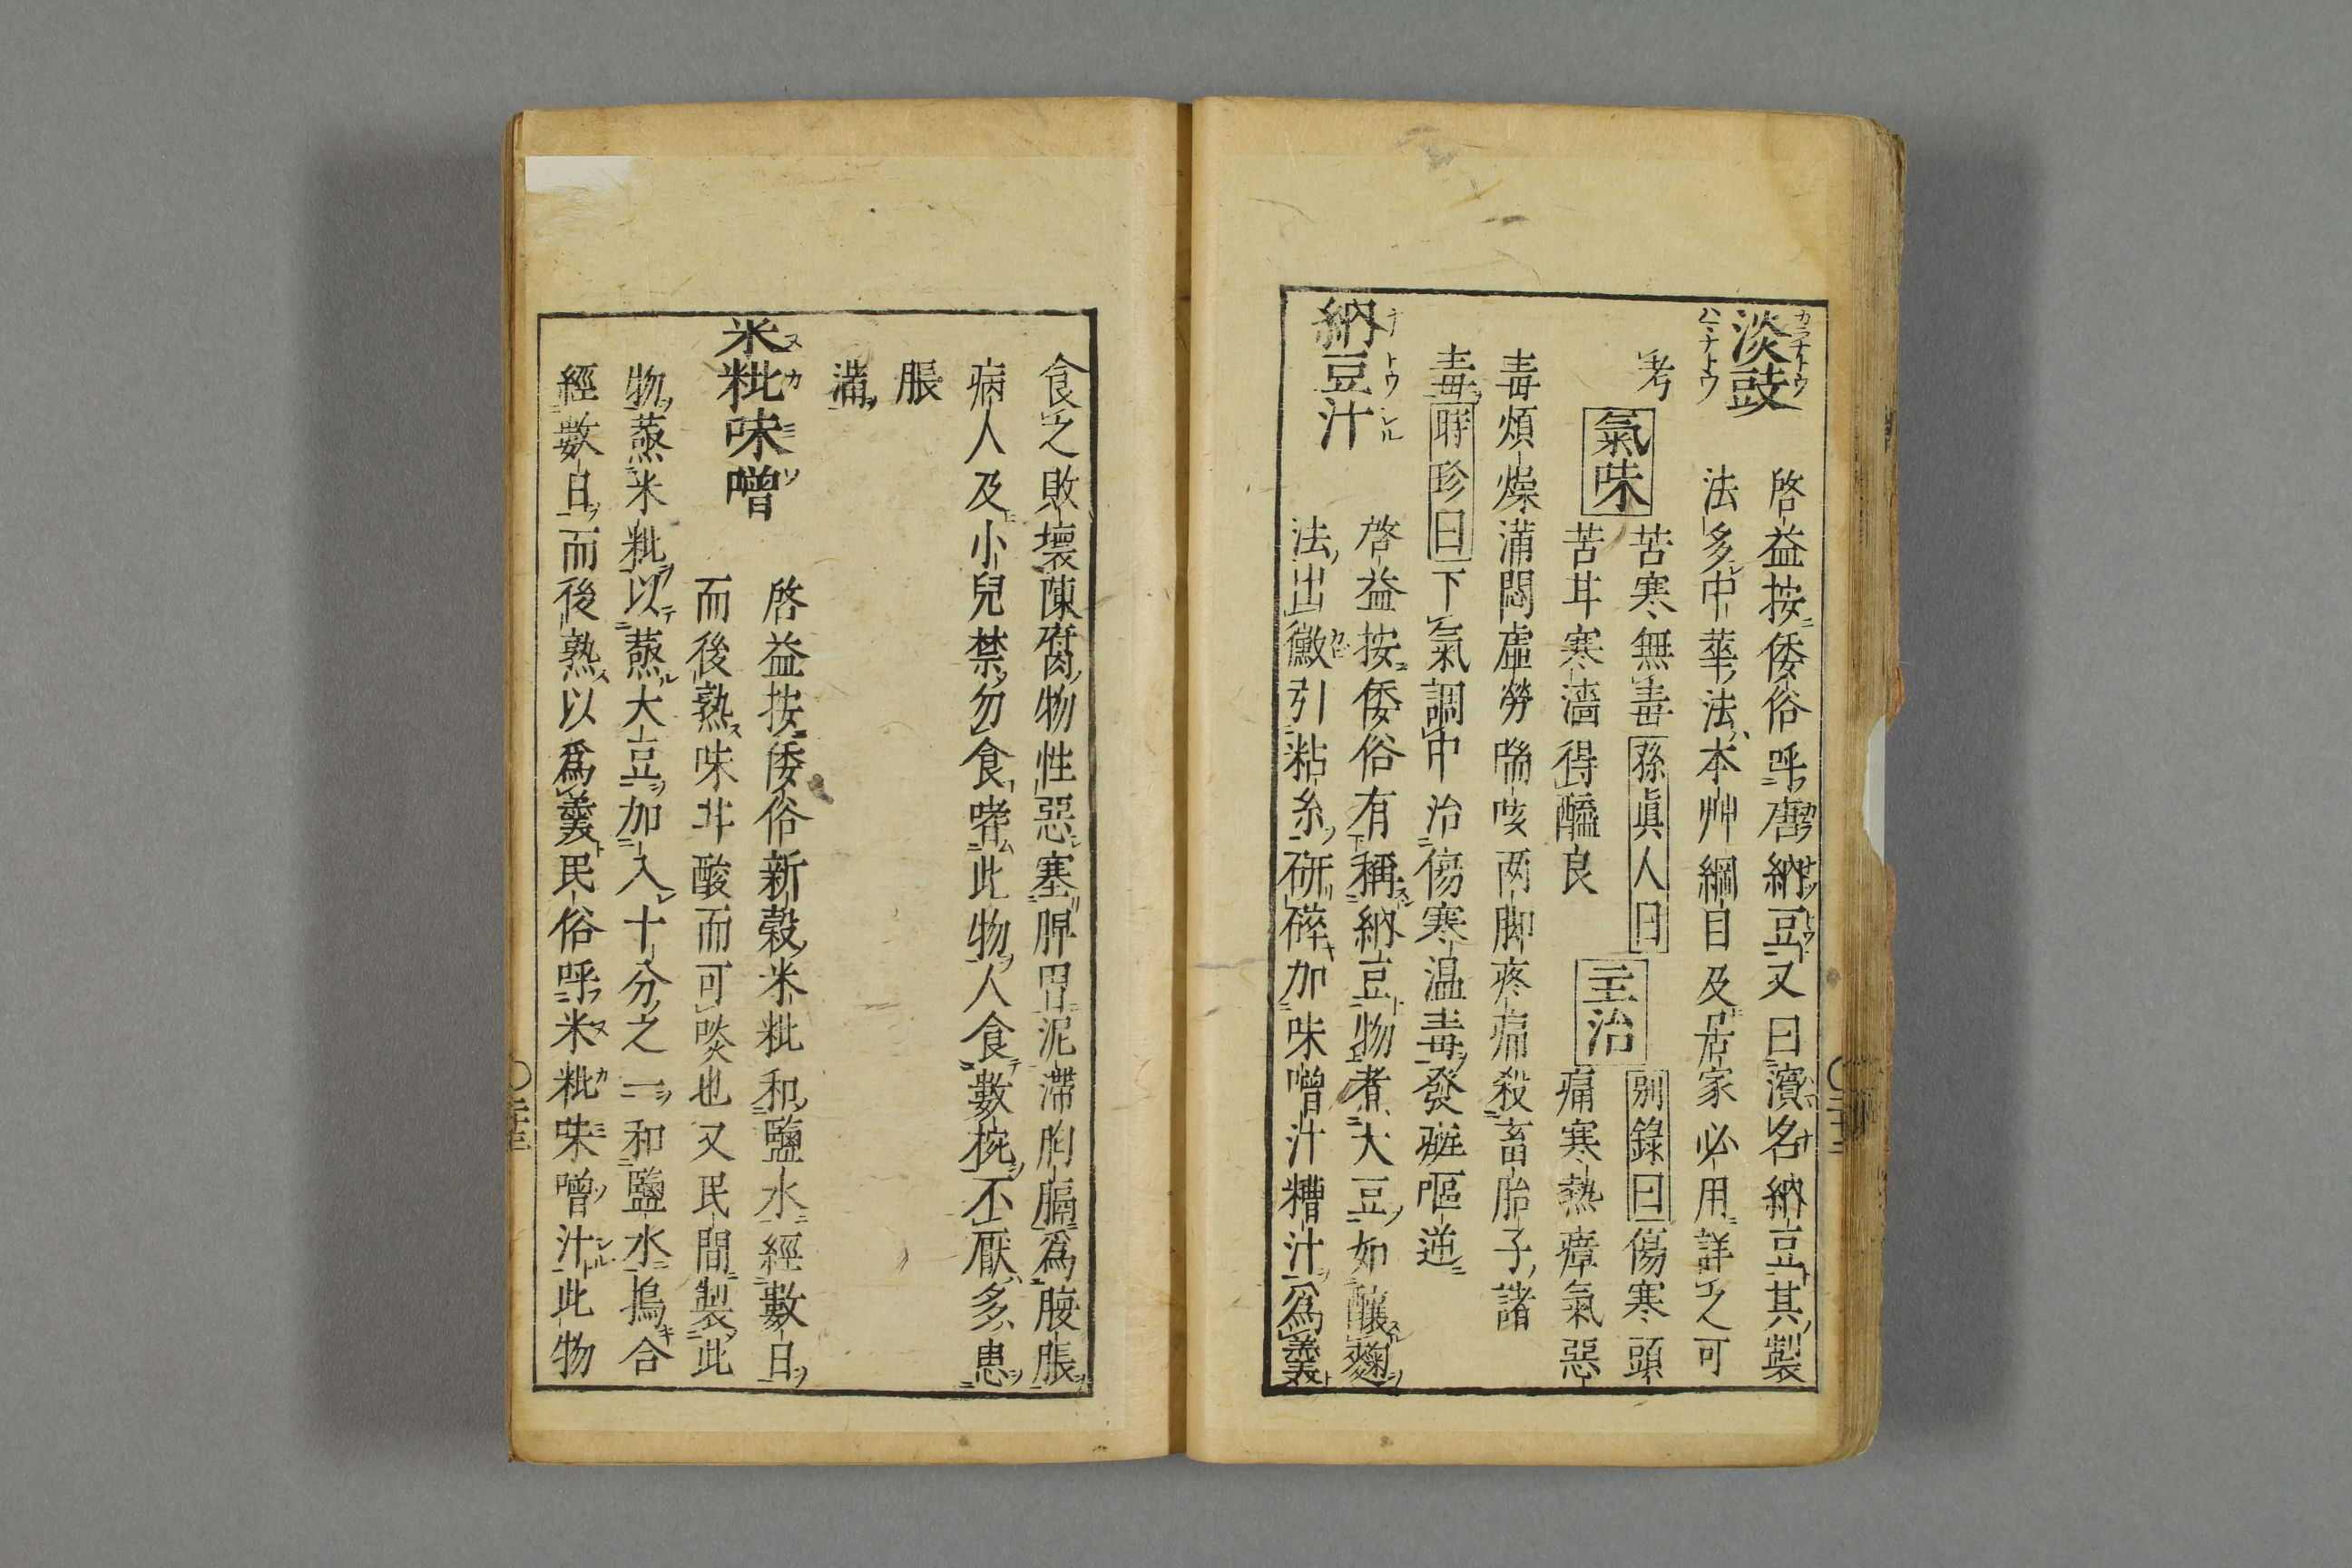 淡豉
啓益按倭俗呼唐納豆又曰濱名納豆其製
法多中華法本艸綱目及居家必用詳之可
考
氣味
苦寒無毒孫眞人曰
苦甘寒濇得醯良
主治
別錄曰傷寒頭
痛寒熱瘴氣惡
毒煩燥滿悶虛勞喘咳兩脚疼痛殺畜胎子諸
毒時珍曰下氣調中治傷寒温毒發斑嘔逆
納豆汁
啓益按倭俗有稱納豆物煮大豆如釀麹
法出黴引粘糸研碎加味噌汁糟汁爲羹
食之敗壞陳腐物性惡塞脾胃泥滯胸膈爲腹脹
病人及小兒禁勿食嗜此物人食數椀不厭多患
脹
滿
米粃味噌
啓益按倭俗新穀米粃和鹽水經數日
而後熟味甘酸而可啖也又民間製此
物蒸米粃以蒸大豆加入十分之二和鹽水搗合
經數日而後熟以爲羹民俗呼米粃味噌汁此物